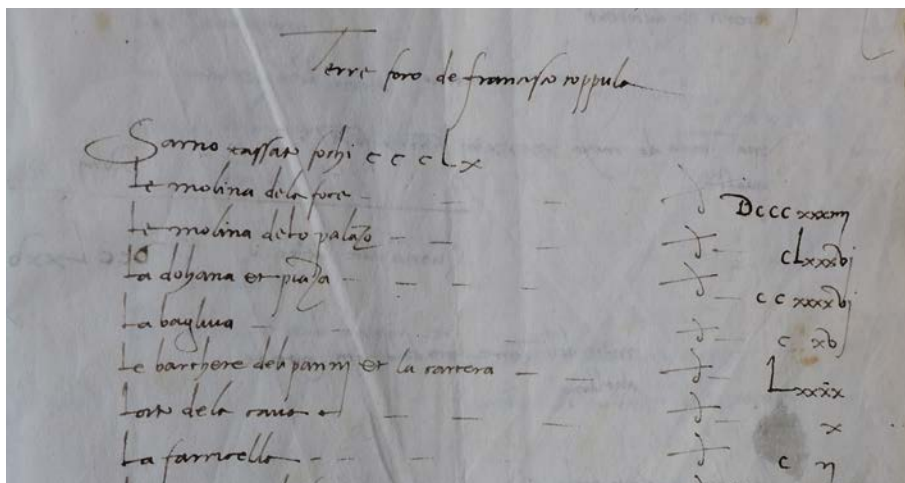 Terre foro de francisco coppula
Sarno tassato fochi c c c L x
Le molina dela foce D c c c xxxiij
Le molina delo palazo c L xxx vj
La dohana et piaza c c xxxx vj
La bagliva c xv
Le barchere deli panni et la cartera L xxxx
Lorto dela cava x
La farricella c ij